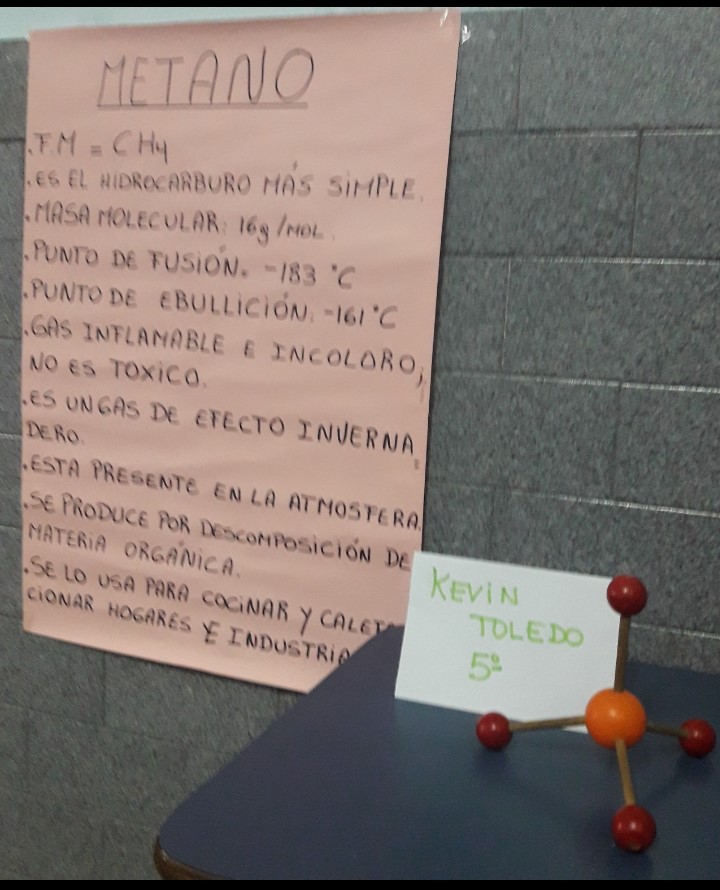 METANO
.F.M = CH4
.ES EL HIDROCARBURO MÁS SIMPLE.
.MASA MOLECULAR: 16g/MOL.
.PUNTO DE FUSIÓN. -183 °C
.PUNTO DE EBULLICIÓN: -161 °C
.GAS INFLAMABLE E INCOLORO;
NO ES TOXICO.
.ES UN GAS DE EFECTO INVERNA
DERO.
.ESTA PRESENTE EN LA ATMOSFERA.
.SE PRODUCE POR DESCOMPOSICIÓN DE
MATERIA ORGÁNICA.
.SE LO USA PARA COCINAR Y CALEFA
CIONAR HOGARES E INDUSTRIA
KEVIN
TOLEDO
5º